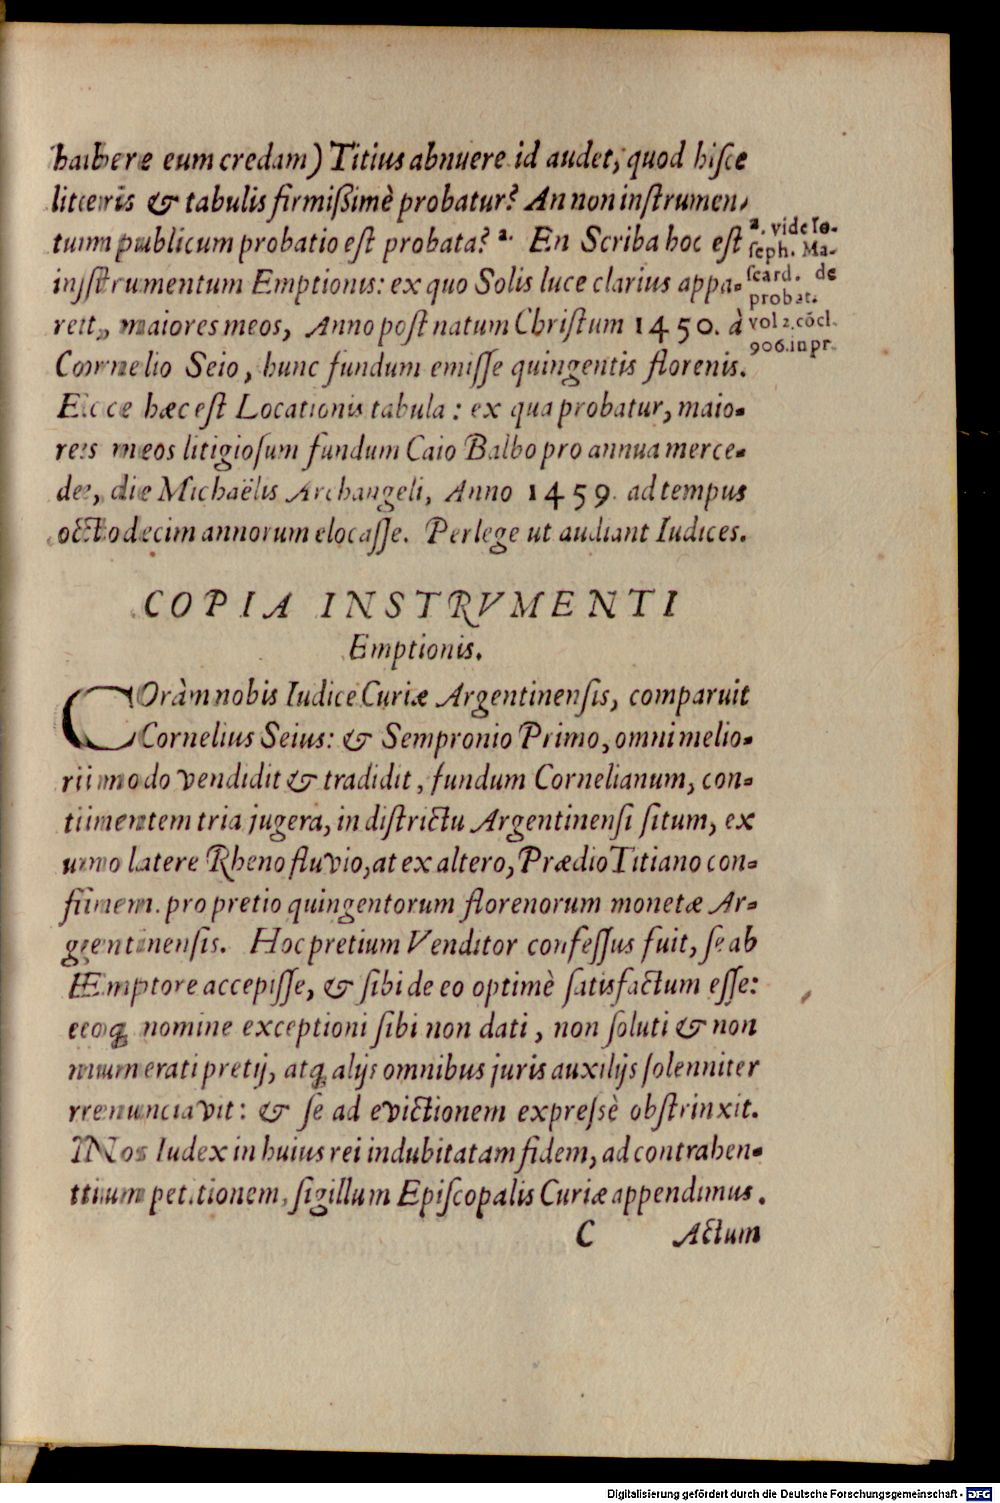 habere eum credam) Titius abnuere id audet, quod hisce
litteris & tabulis firmißimè probatur? An non instrumen-
tum publicum probatio est probata? a. En Scriba hoc est
instrumentum Emptionis: ex quo Solis luce clarius appa-
ret, maiores meos, Anno post natum Christum 1450. à
Cornelio Seio, hunc fundum emisse quingentis florenis.
Ecce hæc est Locationis tabula: ex qua probatur, maio-
res meos litigiosum fundum Caio Balbo pro annua merce-
de, die Michaëlis Archangeli, Anno 1459. ad tempus
octodecim annorum elocasse. Perlege ut audiant Iudices.
a. vide Io-
seph. Ma-
scard. de
probat.
vol 2. cōcl.
906. in pr.
COPIA INSTRVMENTI
Emptionis.
COràm nobis Iudice Curiæ Argentinensis, comparuit
Cornelius Seius: & Sempronio Primo, omni melio-
ri modo vendidit & tradidit, fundum Cornelianum, con-
tinentem tria jugera, in districtu Argentinensi situm, ex
uno latere Rheno fluvio, at ex altero, Prædio Titiano con-
finem. pro pretio quingentorum florenorum monetæ Ar-
gentinensis. Hoc pretium Venditor confessus fuit, se ab
Emptore accepisse, & sibi de eo optimè satisfactum esse:
eoq; nomine exceptioni sibi non dati, non soluti & non
numerati pretij, atq; alijs omnibus juris auxilijs solenniter
renunciavit: & se ad evictionem expresè obstrinxit.
Nos Iudex in huius rei indubitatam fidem, ad contrahen-
tium petitionem, sigillum Episcopalis Curiæ appendimus.
C Actum
Digitalisierung gefördert durch die Deutsche Forschungsgemeinschaft - DFG